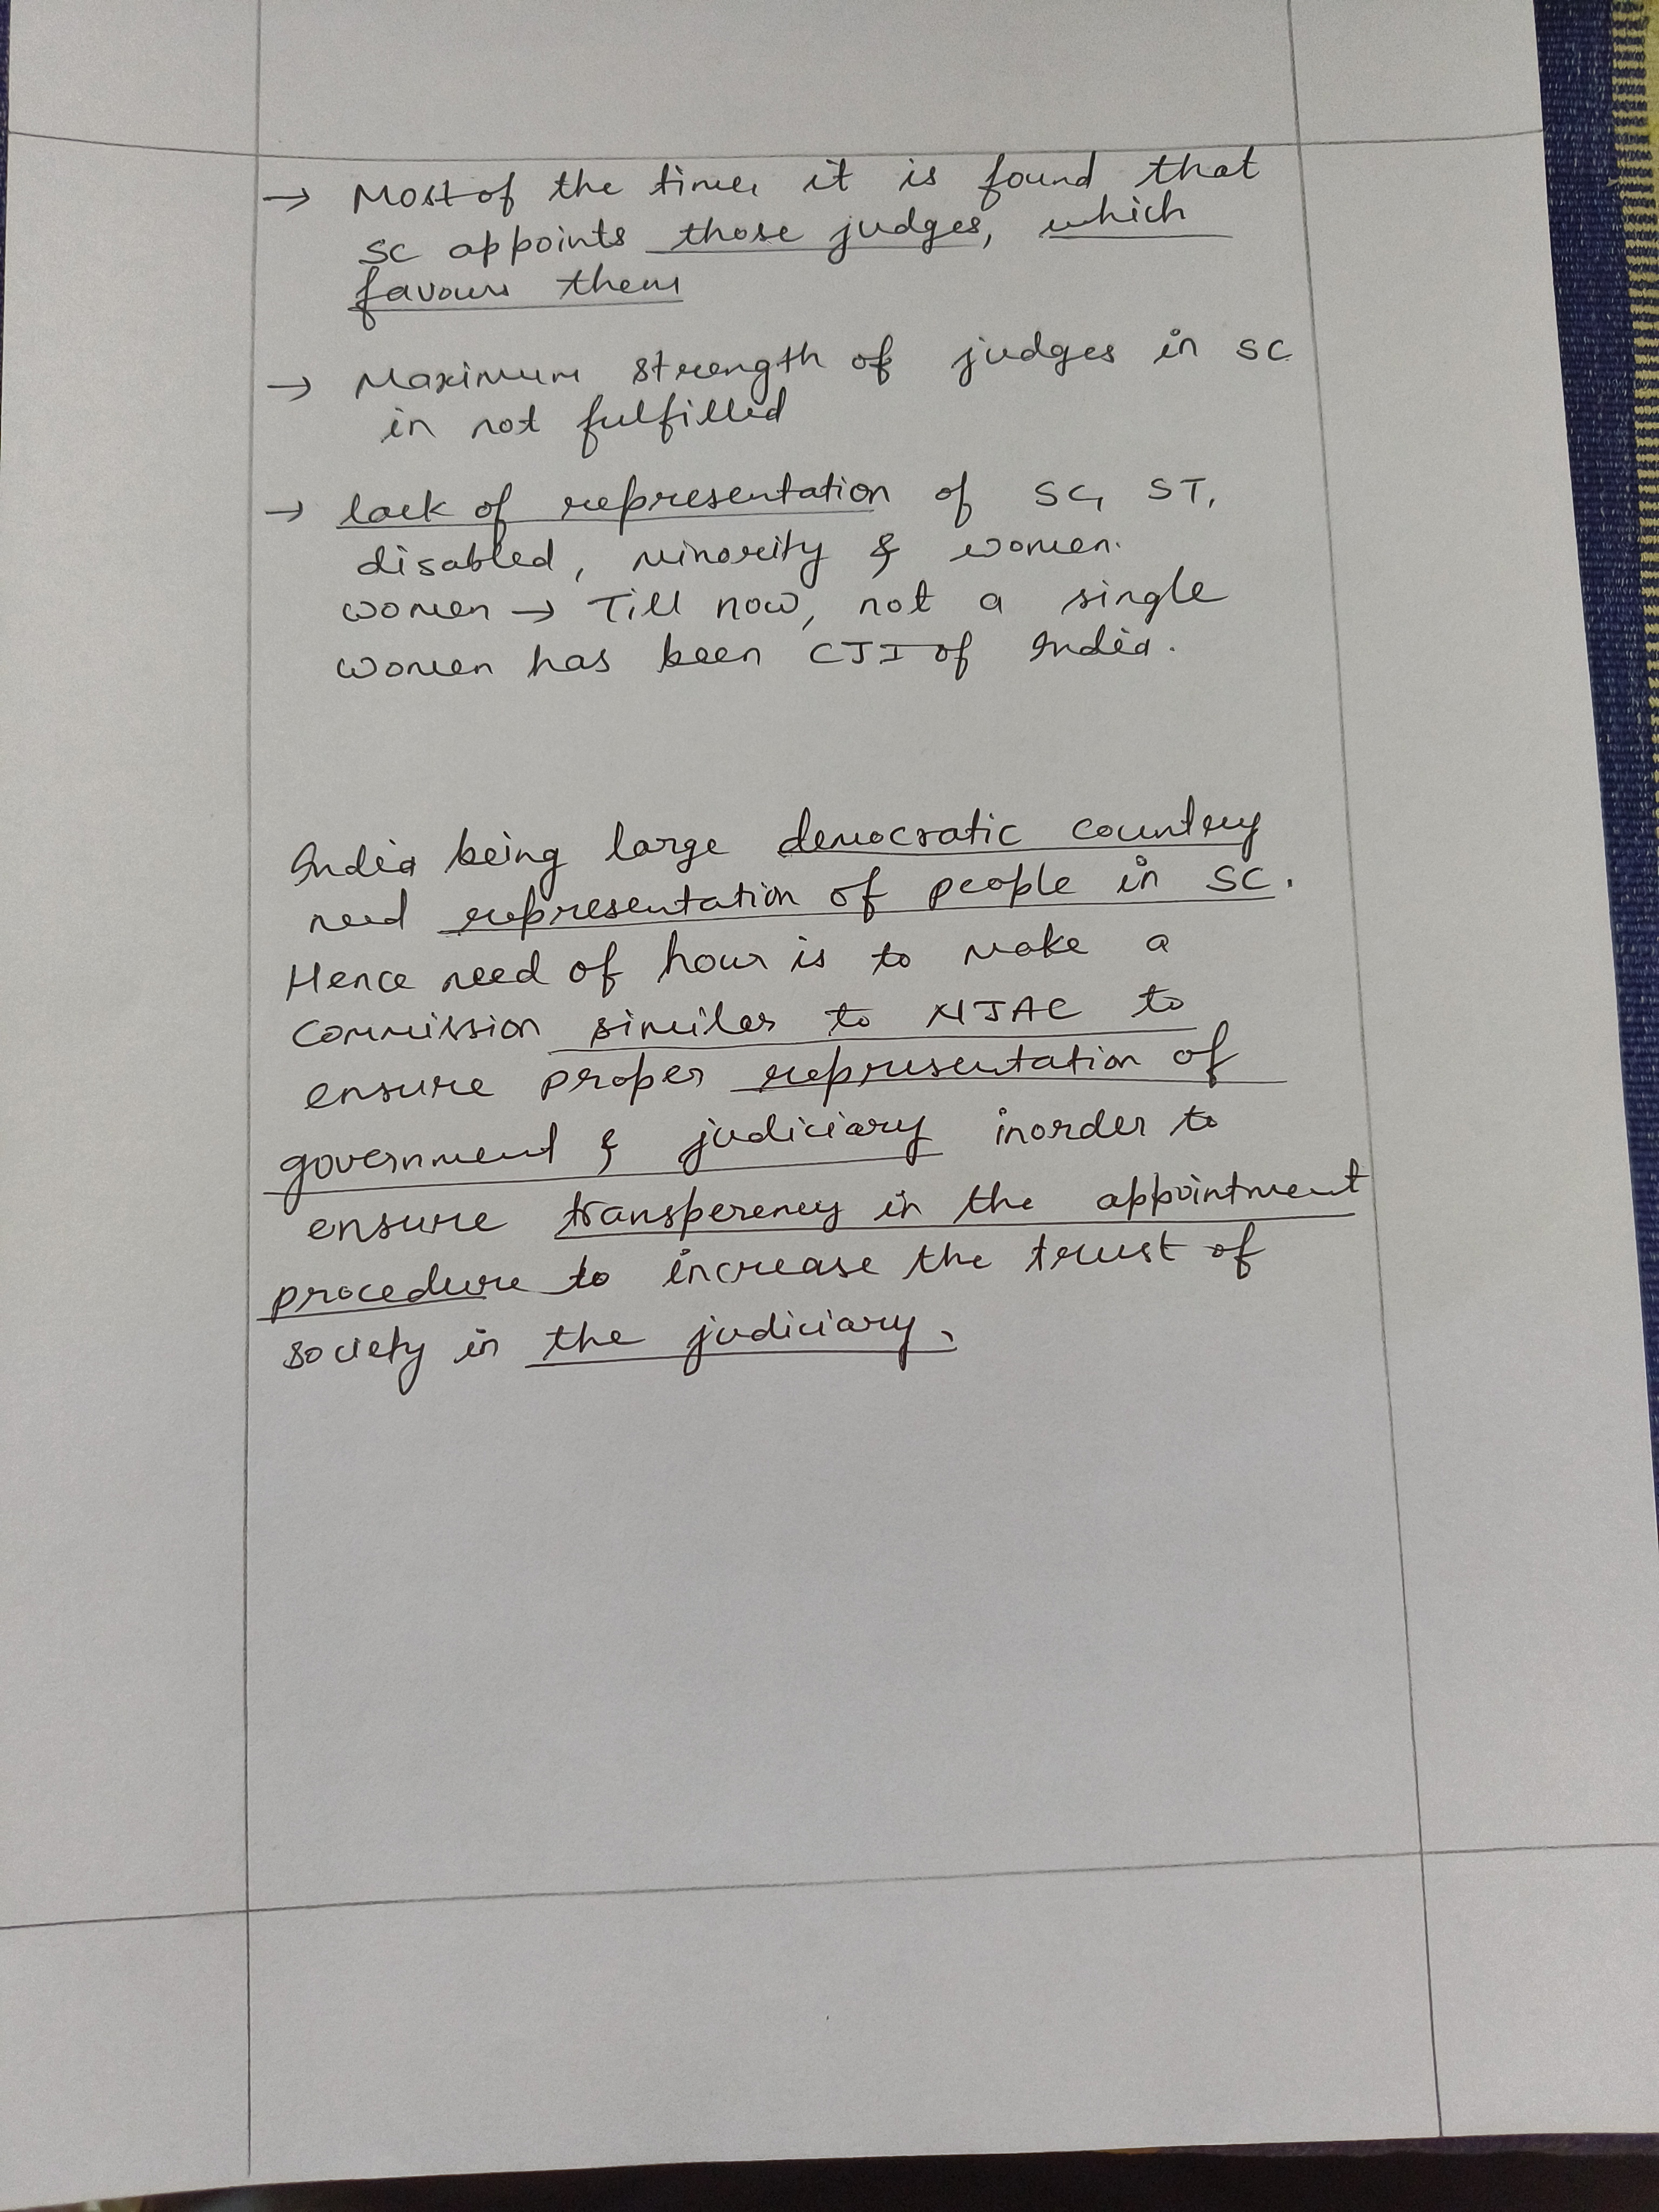 → Most of the time, it is found that
SC appoints those judges, which
favours them
→ Maximum strength of judges in SC
in not fulfilled
→ lack of representation of SC, ST,
disabled, minority & women.
women → Till now, not a single
women has been CJI of India.
India being large democratic country
need representation of people in SC.
Hence need of hour is to make a
Commission similar to NJAC to
ensure proper representation of
government & judiciary inorder to
ensure transperency in the appointment
procedure to increase the trust of
society in the judiciary.